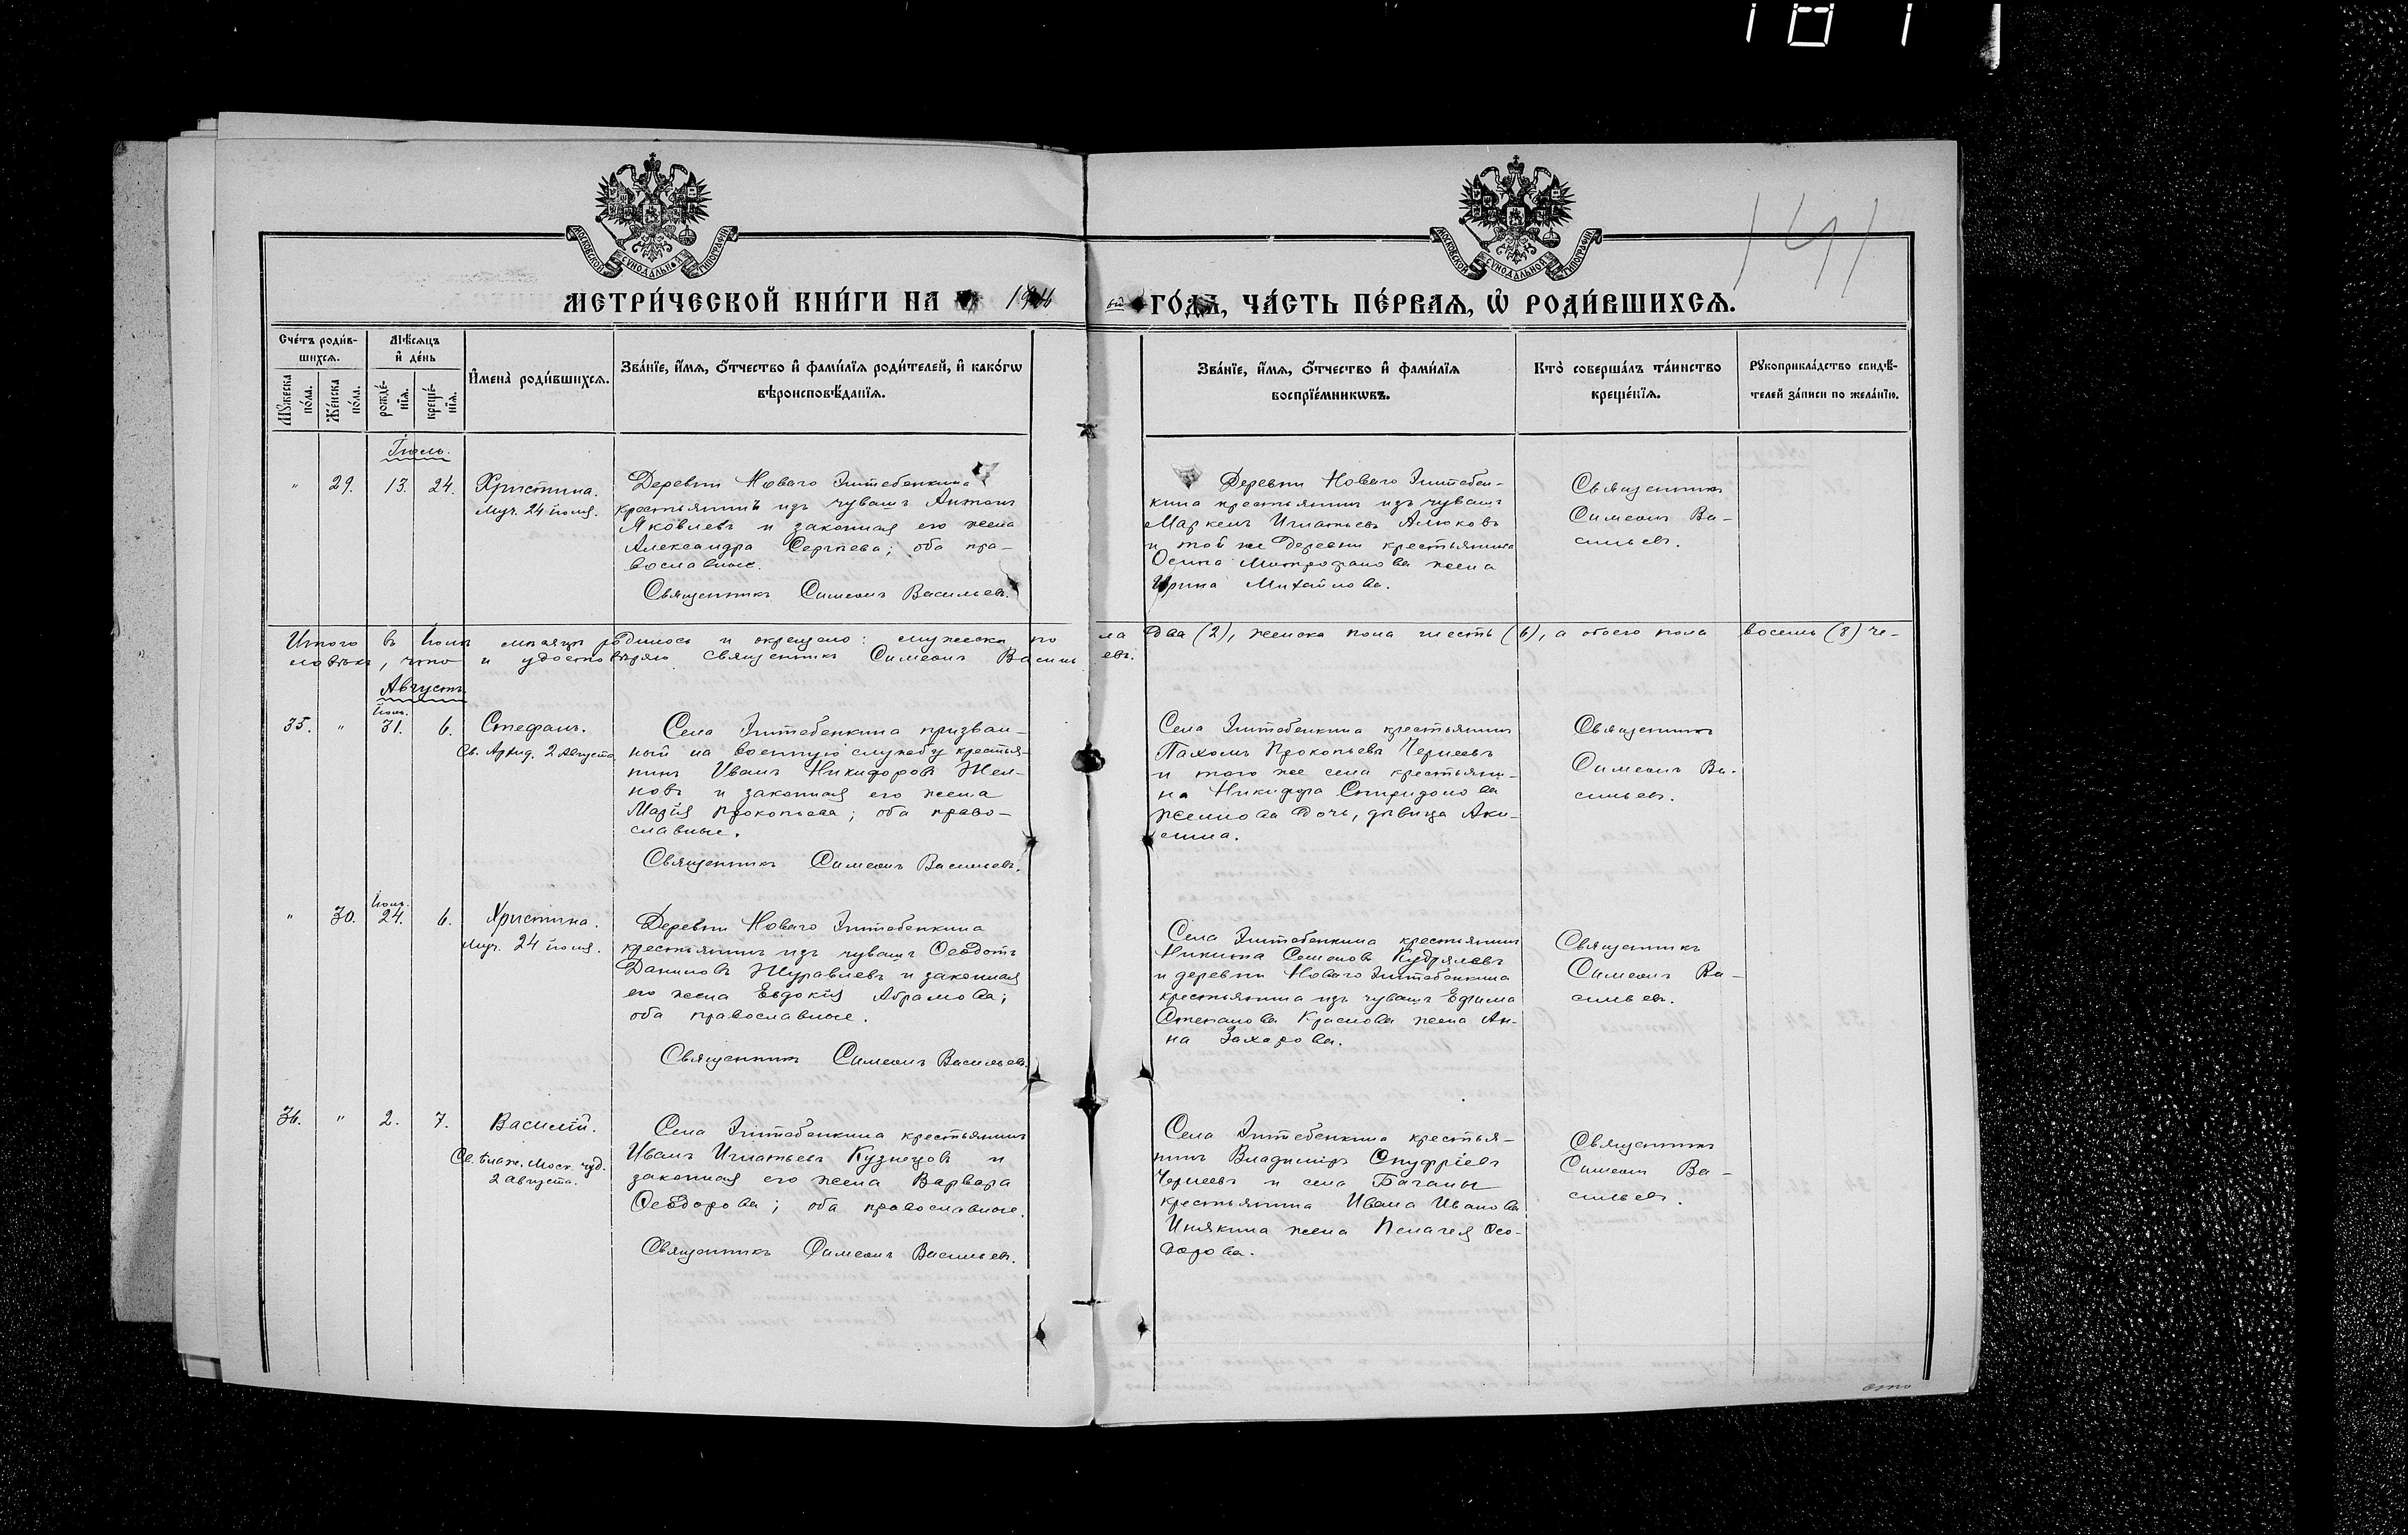 141
МОСКОВСКОЙ СУНОДАЛЬНОЙ ТИПОГРАФІИ
МОСКОВСКОЙ СУНОДАЛЬНОЙ ТИПОГРАФІИ
МЕТРИ́ЧЕСКОЙ КНИ́ГИ НА 19
ГО́ДЪ, ЧА́СТЬ ПЕ́РВАѦ, Ѡ РОДИ́ВШИХСѦ.
Сче́тъ роди́в-
шихсѧ.
Мꙋ́жеска по́ла.
Же́нска по́ла.
Мѣ́сѧцъ
и҆ де́нь
рожде́-
нїѧ.
креще́-
нїѧ.
И҆мена̀ роди́вшихсѧ.
Зва́нїе, и҆́мѧ, ѻ҆́тчество и҆ фами́лїѧ роди́телей, и҆ како́гѡ
вѣроисповѣ́данїѧ.
Зва́нїе, и҆́мѧ, ѻ҆́тчество и҆ фами́лїѧ
воспрїе́мникѡвъ.
Кто̀ соверша́лъ та́инство
креще́нїѧ.
Рꙋкоприкла́дство свидѣ́-
телей за́писи по жела́нїю.
Іюль.
" 29. 13. 24.
Христина.
Муч. 24 іюля.
Деревни Новаго Эштебенкина
крестьянинъ изъ чувашъ Антонъ
Яковлевъ и законная его жена
Александра Сергѣева; оба пра-
вославные.
Священникъ Симеонъ Васильевъ.
Деревни Новаго Эштебен-
кина крестьянинъ изъ чувашъ
Маркелъ Игнатьевъ Алюковъ
и той же деревни крестьянина
Осипа Митрофанова жена
Ирина Михайлова.
Священникъ
Симеонъ Ва-
сильевъ.
Итого въ Іюлѣ мѣсяцѣ родилось и окрещено: мужеска по ла два (2), женска пола шесть (6), а обоего пола восемь (8) че-
ловѣкъ, что и удостовѣряю священникъ Симеонъ Василь евъ.
Августъ
35. " Іюль. 31. 6.
Стефанъ.
Св. Архид. 2 Августа
Села Эштебенкина призван-
ный на военную службу крестья-
нинъ Иванъ Никифоровъ Жел-
новъ и законная его жена
Марія Прокопьева; оба право-
славные.
Священникъ Симеонъ Васильевъ.
Села Эштебенкина крестьянинъ
Пахомъ Прокопьевъ Чернеевъ
и того же села крестьяни-
на Никифора Спиридонова
Желнова дочь, дѣвица Аки-
лина.
Священникъ
Симеонъ Ва-
сильевъ.
" 30. Іюль. 24. 6.
Христина.
Муч. 24 іюля.
Деревни Новаго Эштебенкина
крестьянинъ изъ чувашъ Ѳеодотъ
Даниловъ Журавлевъ и законная
его жена Евдокія Абрамова;
оба православные.
Священникъ Симеонъ Васильевъ.
Села Эштебенкина крестьянинъ
Никита Семеновъ Кудрялевъ
и деревни Новаго Эштебенкина
крестьянина изъ чувашъ Ефима
Степанова Краснова жена Ан-
на Захарова.
Священникъ
Симеонъ Ва-
сильевъ.
36. " 2. 7.
Василій.
Св. Блаж. Моск. чуд.
2 августа.
Села Эштебенкина крестьянинъ
Иванъ Игнатьевъ Кузнецовъ и
законная его жена Варвара
Ѳеодорова; оба православные.
Священникъ Симеонъ Васильевъ.
Села Эштебенкина крестья-
нинъ Владиміръ Онуфріевъ
Чернеевъ и села Баганы
крестьянина Ивана Иванова
Инякина жена Пелагея Ѳео-
дорова.
Священникъ
Симеонъ Ва-
сильевъ.